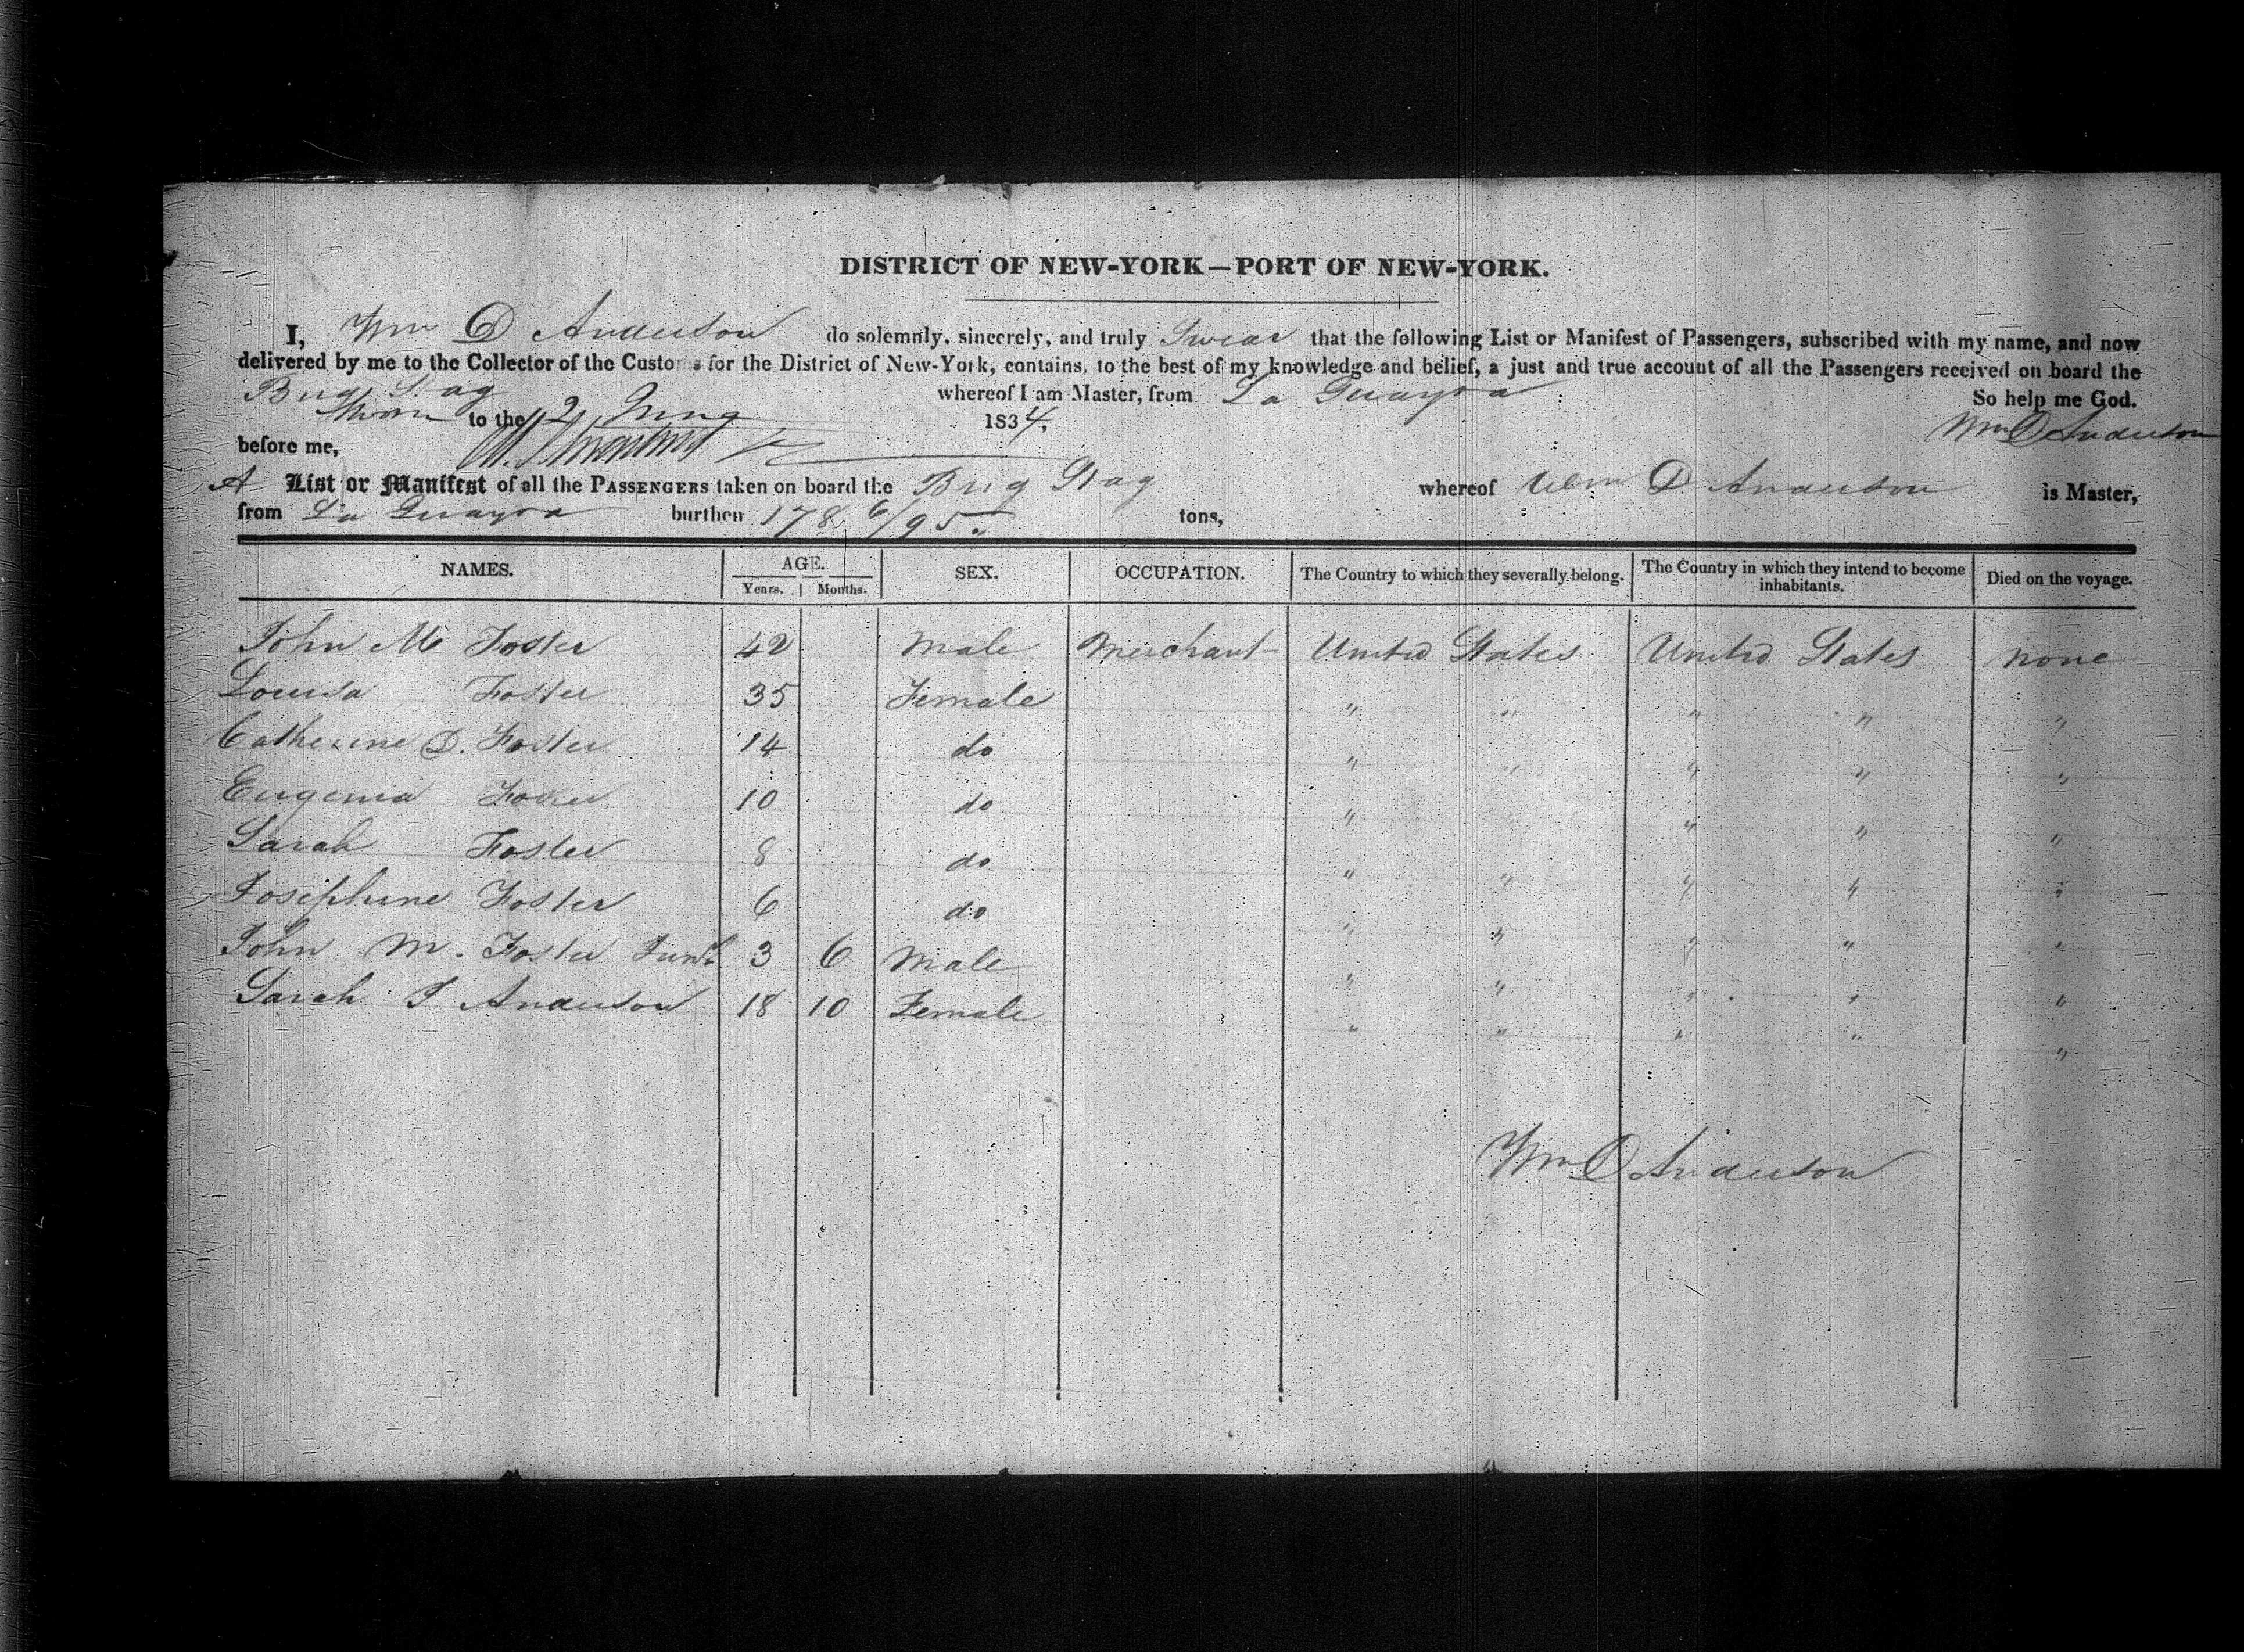 DISTRICT OF NEW-YORK—PORT OF NEW-YORK.
I, Wm D Anderson do solemnly, sincerely, and truly Swear that the following List or Manifest of Passengers, subscribed with my name, and now
delivered by me to the Collector of the Customs for the District of New-York, contains, to the best of my knowledge and belief, a just and true account of all the Passengers received on board the
Brig Stag whereof I am Master, from La Guayra So help me God.
Sworn to the 12 1834. Wm D Anderson
before me,
A List or Manifest of all the PASSENGERS taken on board the Brig Stag whereof Wm D Anderson is Master,
from La Guayra burthen 178 6/95 tons,
NAMES. AGE. SEX. OCCUPATION. The Country to which they severally belong. The Country in which they intend to become inhabitants. Died on the voyage.
Years. Months.
John M Foster 42 Male Merchant United States United States none
Louisa Foster 35 Female " " " " "
Catherine D. Foster 14 do " " " " "
Eugenia Foster 10 do " " " " "
Sarah Foster 8 do " " " " "
Josephine Foster 6 do " " " " "
John M. Foster Junr 3 6 Male " " " " "
Sarah J Anderson 18 10 Female " " " " "
Wm D Anderson